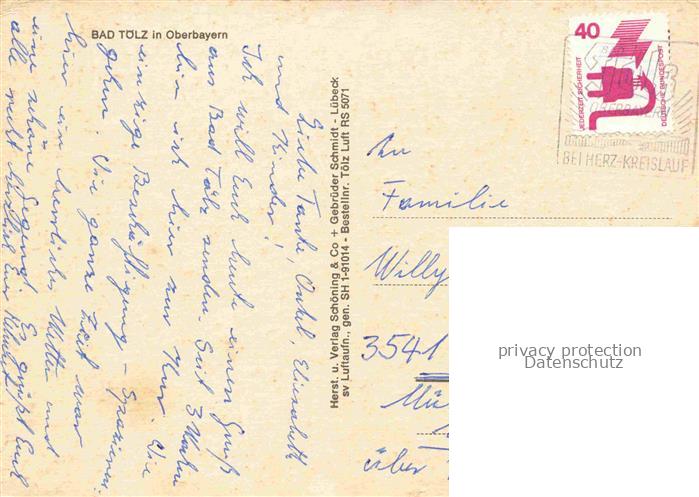 BAD TÖLZ in Oberbayern
Liebe Tante, Onkel, Elisabeth
und Kinder!
Ich will Euch heute einen Gruß
aus Bad Tölz senden. Seit 3 Wochen
bin ich hier zur Kur. Die
einzige Beschäftigung - Spazieren-
gehen. Die ganze Zeit war
hier ein herrliches Wetter und
eine schöne Gegend. Es grüßt Euch
alle recht herzlich Eur
Herst. u. Verlag Schöning & Co + Gebrüder Schmidt - Lübeck
sv Luftaufn., gen. SH 1-91014 - Bestellnr. Tölz Luft RS 5071
40
JEDERZEIT SICHERHEIT
DEUTSCHE BUNDESPOST
BAD
OBERBAYERN
BEI HERZ-KREISLAUF
An
Familie
Willy
3541
über
privacy protection
Datenschutz